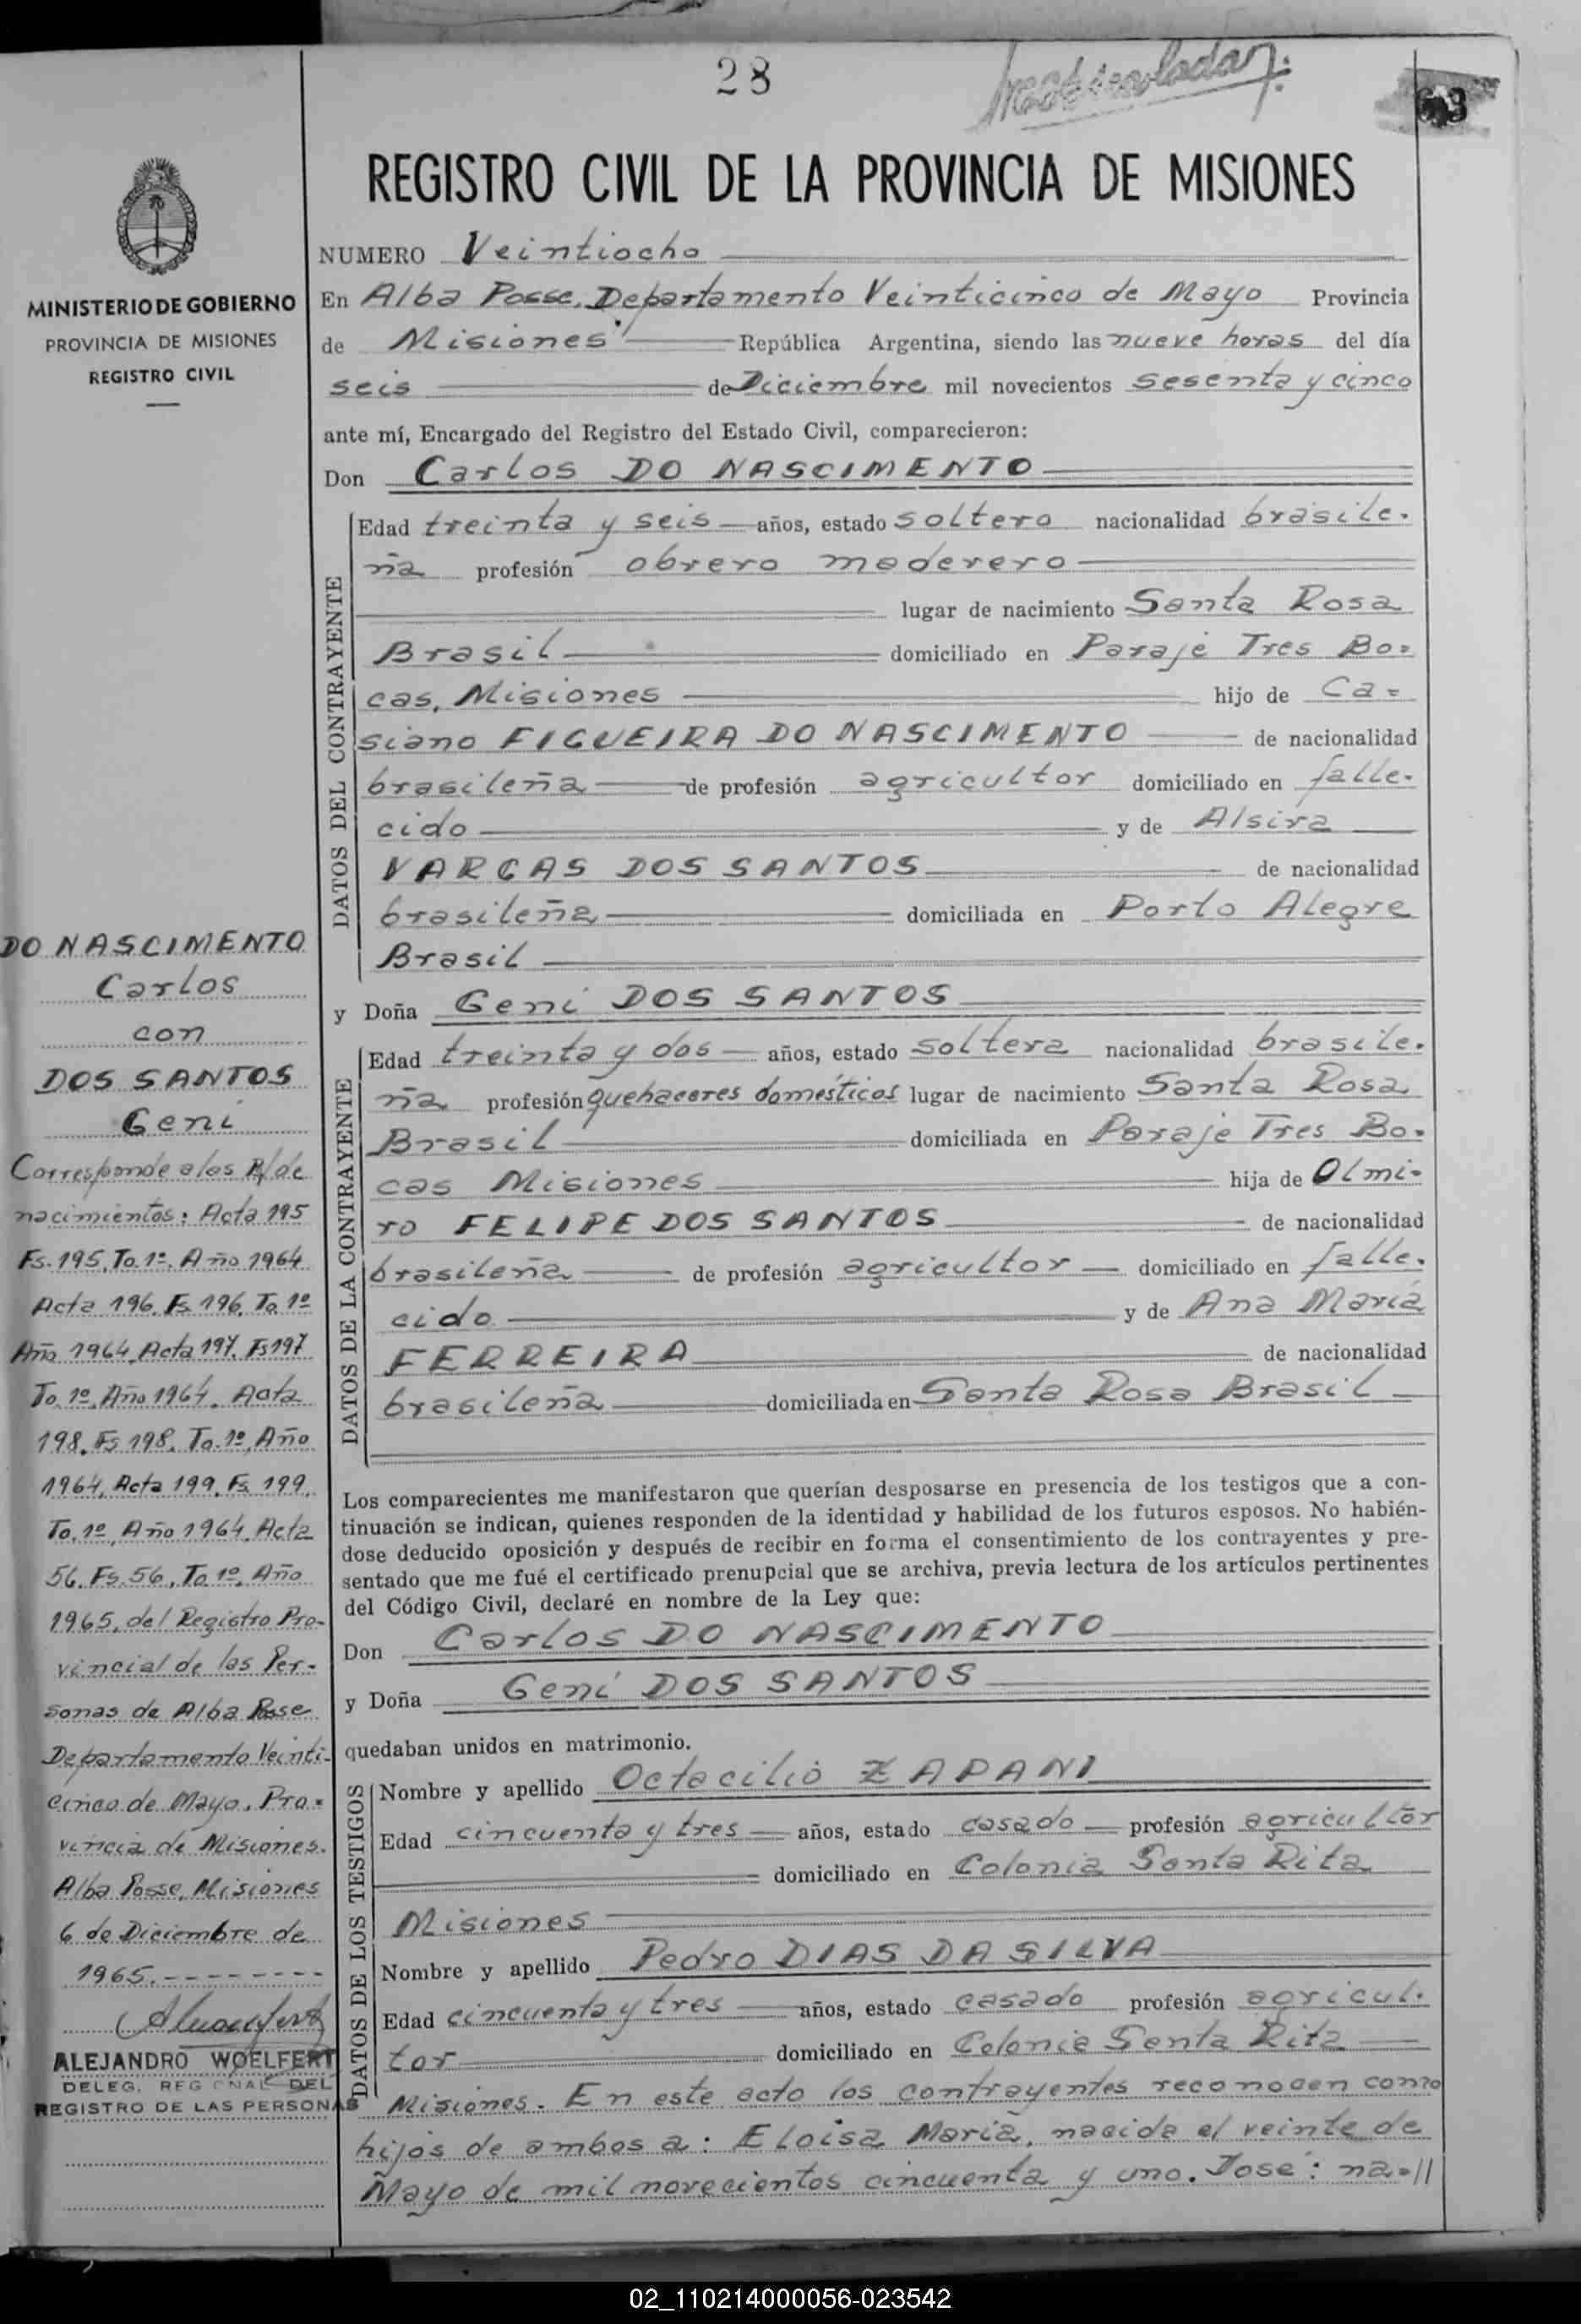 28
63
REGISTRO CIVIL DE LA PROVINCIA DE MISIONES
MINISTERIO DE GOBIERNO
PROVINCIA DE MISIONES
REGISTRO CIVIL
NUMERO Veintiocho
En Alba Posse, Departamento Veinticinco de Mayo Provincia
de Misiones República Argentina, siendo las nueve horas del día
seis de Diciembre mil novecientos sesenta y cinco
ante mí, Encargado del Registro del Estado Civil, comparecieron:
Don Carlos DO NASCIMENTO
DATOS DEL CONTRAYENTE
Edad treinta y seis años, estado soltero nacionalidad brasile-
ña profesión obrero maderero
lugar de nacimiento Santa Rosa
Brasil domiciliado en Paraje Tres Bo=
cas, Misiones hijo de Ca=
siano FIGUEIRA DO NASCIMENTO de nacionalidad
brasileña de profesión agricultor domiciliado en falle-
cido y de Alsira
VARGAS DOS SANTOS de nacionalidad
brasileña domiciliada en Porto Alegre
Brasil
y Doña Geni DOS SANTOS
DATOS DE LA CONTRAYENTE
Edad treinta y dos años, estado soltera nacionalidad brasile-
ña profesión quehaceres domésticos lugar de nacimiento Santa Rosa
Brasil domiciliada en Paraje Tres Bo-
cas Misiones hija de Olmi-
ro FELIPE DOS SANTOS de nacionalidad
brasileña de profesión agricultor domiciliado en falle-
cido y de Ana Maria
FERREIRA de nacionalidad
brasileña domiciliada en Santa Rosa Brasil
Los comparecientes me manifestaron que querían desposarse en presencia de los testigos que a con-
tinuación se indican, quienes responden de la identidad y habilidad de los futuros esposos. No habién-
dose deducido oposición y después de recibir en forma el consentimiento de los contrayentes y pre-
sentado que me fué el certificado prenupcial que se archiva, previa lectura de los artículos pertinentes
del Código Civil, declaré en nombre de la Ley que:
Don Carlos DO NASCIMENTO
y Doña Geni DOS SANTOS
quedaban unidos en matrimonio.
DATOS DE LOS TESTIGOS
Nombre y apellido Octacilio ZAPANI
Edad cincuenta y tres años, estado casado profesión agricultor
domiciliado en Colonia Santa Rita
Misiones
Nombre y apellido Pedro DIAS DA SILVA
Edad cincuenta y tres años, estado casado profesión agricul-
tor domiciliado en Colonia Santa Rita
Misiones. En este acto los contrayentes reconocen como
hijos de ambos a: Eloisa Maria, nacida el veinte de
Mayo de mil novecientos cincuenta y uno. José: na=//
DO NASCIMENTO
Carlos
con
DOS SANTOS
Geni
Corresponde a las P/de
nacimientos: Acta 195
Fs. 195, To. 1º, Año 1964
Acta 196, Fs. 196, To 1º
Año 1964, Acta 197, Fs 197
To. 1º, Año 1964, Acta
198, Fs 198, To. 1º, Año
1964, Acta 199, Fs. 199,
To. 1º, Año 1964, Acta
56, Fs. 56, To 1º, Año
1965, del Registro Pro-
vincial de las Per-
sonas de Alba Posse
Departamento Veinti-
cinco de Mayo, Pro=
vincia de Misiones.
Alba Posse, Misiones
6 de Diciembre de
1965.
ALEJANDRO WOELFERT
DELEG. REGIONAL DEL
REGISTRO DE LAS PERSONAS
02_110214000056-023542